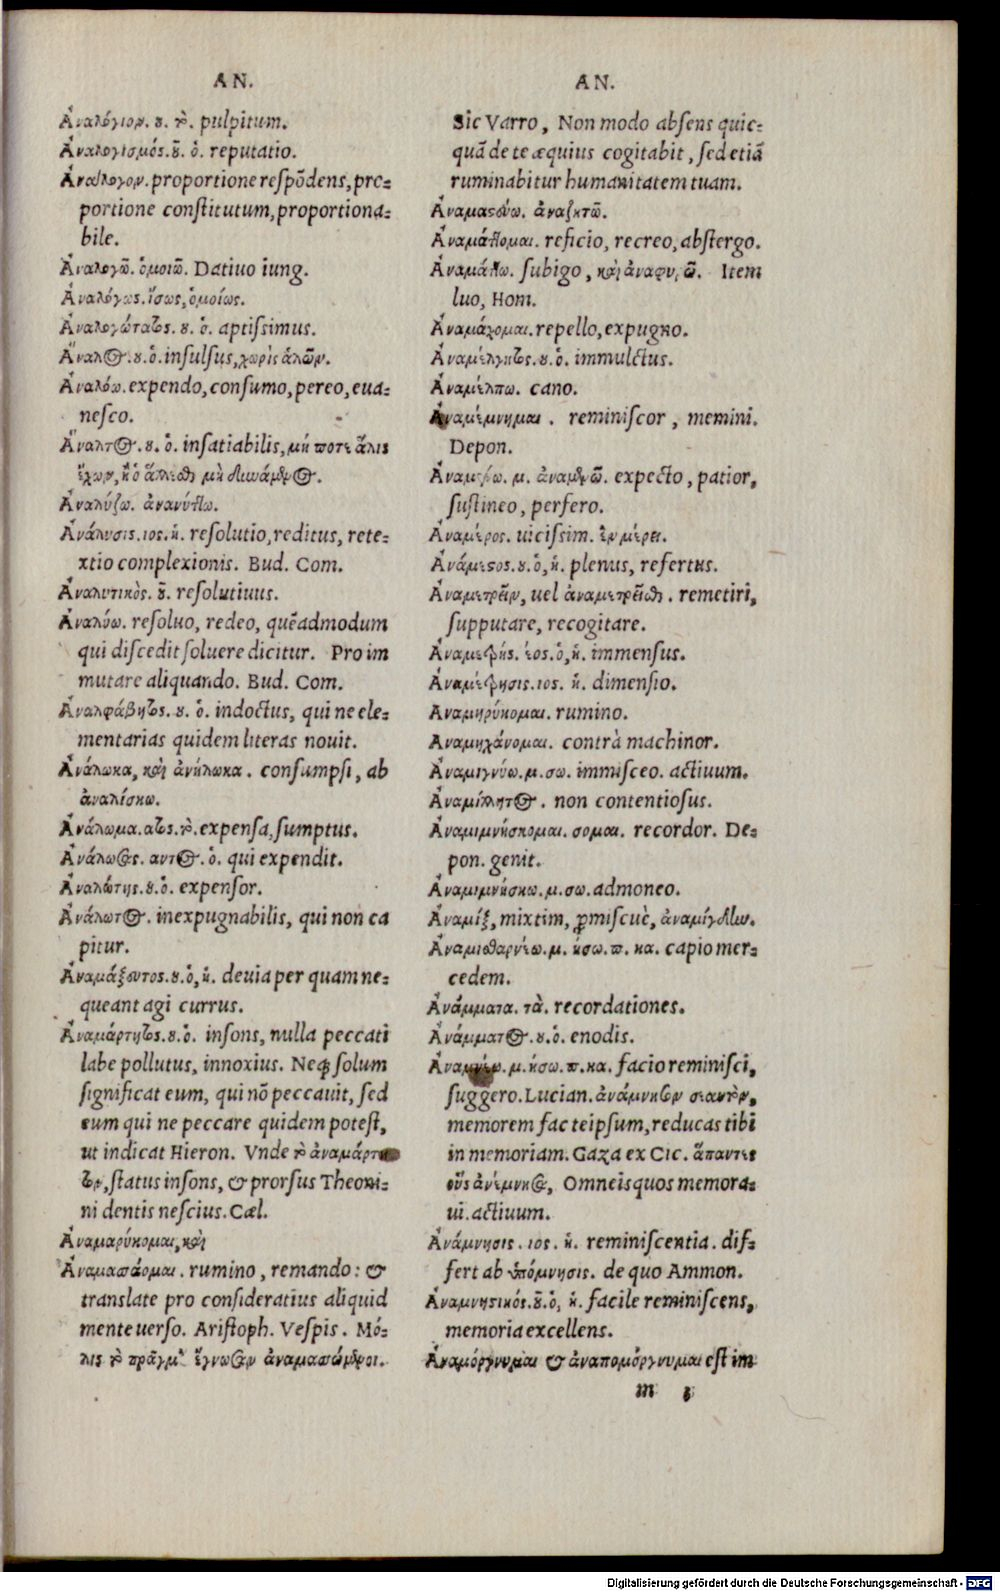 AN.
Ἀναλόγιον. ου. τὸ. pulpitum.
Ἀναλογισμός. οῦ. ὁ. reputatio.
Ἀνάλογον. proportione respōdens, pro-
portione constitutum, proportiona-
bile.
Ἀναλογῶ. ὁμοιῶ. Datiuo iung.
Ἀναλόγως. ἴσως, ὁμοίως.
Ἀναλογώτατος. ου. ὁ. aptissimus.
Ἄναλος. ου. ὁ. insulsus, χωρὶς ἁλῶν.
Ἀναλόω. expendo, consumo, pereo, eua-
nesco.
Ἄναλτος. ου. ὁ. insatiabilis, μή ποτε ἅλις
ἔχων, ἢ ὁ
Ἀναλύζω. ἀνανύττω.
Ἀνάλυσις. ιος. ἡ. resolutio, reditus, rete-
xtio complexionis. Bud. Com.
Ἀναλυτικὸς. οῦ. resolutiuus.
Ἀναλύω. resoluo, redeo, quēadmodum
qui discedit soluere dicitur. Pro im
mutare aliquando. Bud. Com.
Ἀναλφάβητος. ου. ὁ. indoctus, qui ne ele-
mentarias quidem literas nouit.
Ἀνάλωκα, καὶ ἀνήλωκα. consumpsi, ab
ἀναλίσκω.
Ἀνάλωμα. ατος. τὸ. expensa, sumptus.
Ἀνάλωσας. αντος. ὁ. qui expendit.
Ἀναλώτης. ου. ὁ. expensor.
Ἀνάλωτος. inexpugnabilis, qui non ca
pitur.
Ἀναμάξευτος. ου. ὁ, ἡ. deuia per quam ne-
queant agi currus.
Ἀναμάρτητος. ου. ὁ. insons, nulla peccati
labe pollutus, innoxius. Neq; solum
significat eum, qui nō peccauit, sed
eum qui ne peccare quidem potest,
ut indicat Hieron. Vnde τὸ ἀναμάρτη
τον, status insons, & prorsus Theoni-
ni dentis nescius. Cæl.
Ἀναμαρύκομαι, καὶ
Ἀναμασάομαι. rumino, remando: &
translate pro consideratius aliquid
mente uerso. Aristoph. Vespis. Μό-
λις τὸ πρᾶγμ' ἔγνωσαν ἀναμασώμενοι.
AN.
Sic Varro, Non modo absens quic-
quā de te æquius cogitabit, sed etiā
ruminabitur humanitatem tuam.
Ἀναμαστεύω. ἀναζητῶ.
Ἀναμάττομαι. reficio, recreo, abstergo.
Ἀναμάττω. subigo, καὶ ἀναφυρῶ. Item
luo, Hom.
Ἀναμάχομαι. repello, expugno.
Ἀναμέλγητος. ου. ὁ. immulctus.
Ἀναμέλπω. cano.
Ἀναμέμνημαι. reminiscor, memini.
Depon.
Ἀναμένω. μ. ἀναμενῶ. expecto, patior,
sustineo, perfero.
Ἀναμέρος. uicissim. ἐν μέρει.
Ἀνάμεστος. ου. ὁ, ἡ. plenus, refertus.
Ἀναμετρεῖν, uel ἀναμετρεῖσθαι. remetiri,
supputare, recogitare.
Ἀναμετρής. έος. ὁ, ἡ. immensus.
Ἀναμέτρησις. ιος. ἡ. dimensio.
Ἀναμηρύκομαι. rumino.
Ἀναμηχάνομαι. contrà machinor.
Ἀναμιγνύω. μ. σω. immisceo. actiuum.
Ἀναμίλλητος. non contentiosus.
Ἀναμιμνήσκομαι. σομαι. recordor. De-
pon. genit.
Ἀναμιμνήσκω. μ. σω. admoneo.
Ἀναμίξ, mixtim, ꝓmiscuè, ἀναμίγδην.
Ἀναμισθαρνέω. μ. ήσω. π. κα. capio mer-
cedem.
Ἀνάμματα. τὰ. recordationes.
Ἀνάμματος. ου. ὁ. enodis.
Ἀναμνέω. μ. ήσω. π. κα. facio reminisci,
suggero. Lucian. ἀνάμνησον σεαυτὸν,
memorem fac teipsum, reducas tibi
in memoriam. Gaza ex Cic. ἅπαντες
οὓς ἀνέμνησα, Omneis quos memora-
ui. actiuum.
Ἀνάμνησις. ιος. ἡ. reminiscentia. dif-
fert ab ὑπόμνησις. de quo Ammon.
Ἀναμνηστικός. οῦ. ὁ, ἡ. facile reminiscens,
memoria excellens.
Ἀναμόργνυμαι & ἀναπομόργνυμαι est im
m
Digitalisierung gefördert durch die Deutsche Forschungsgemeinschaft - DFG